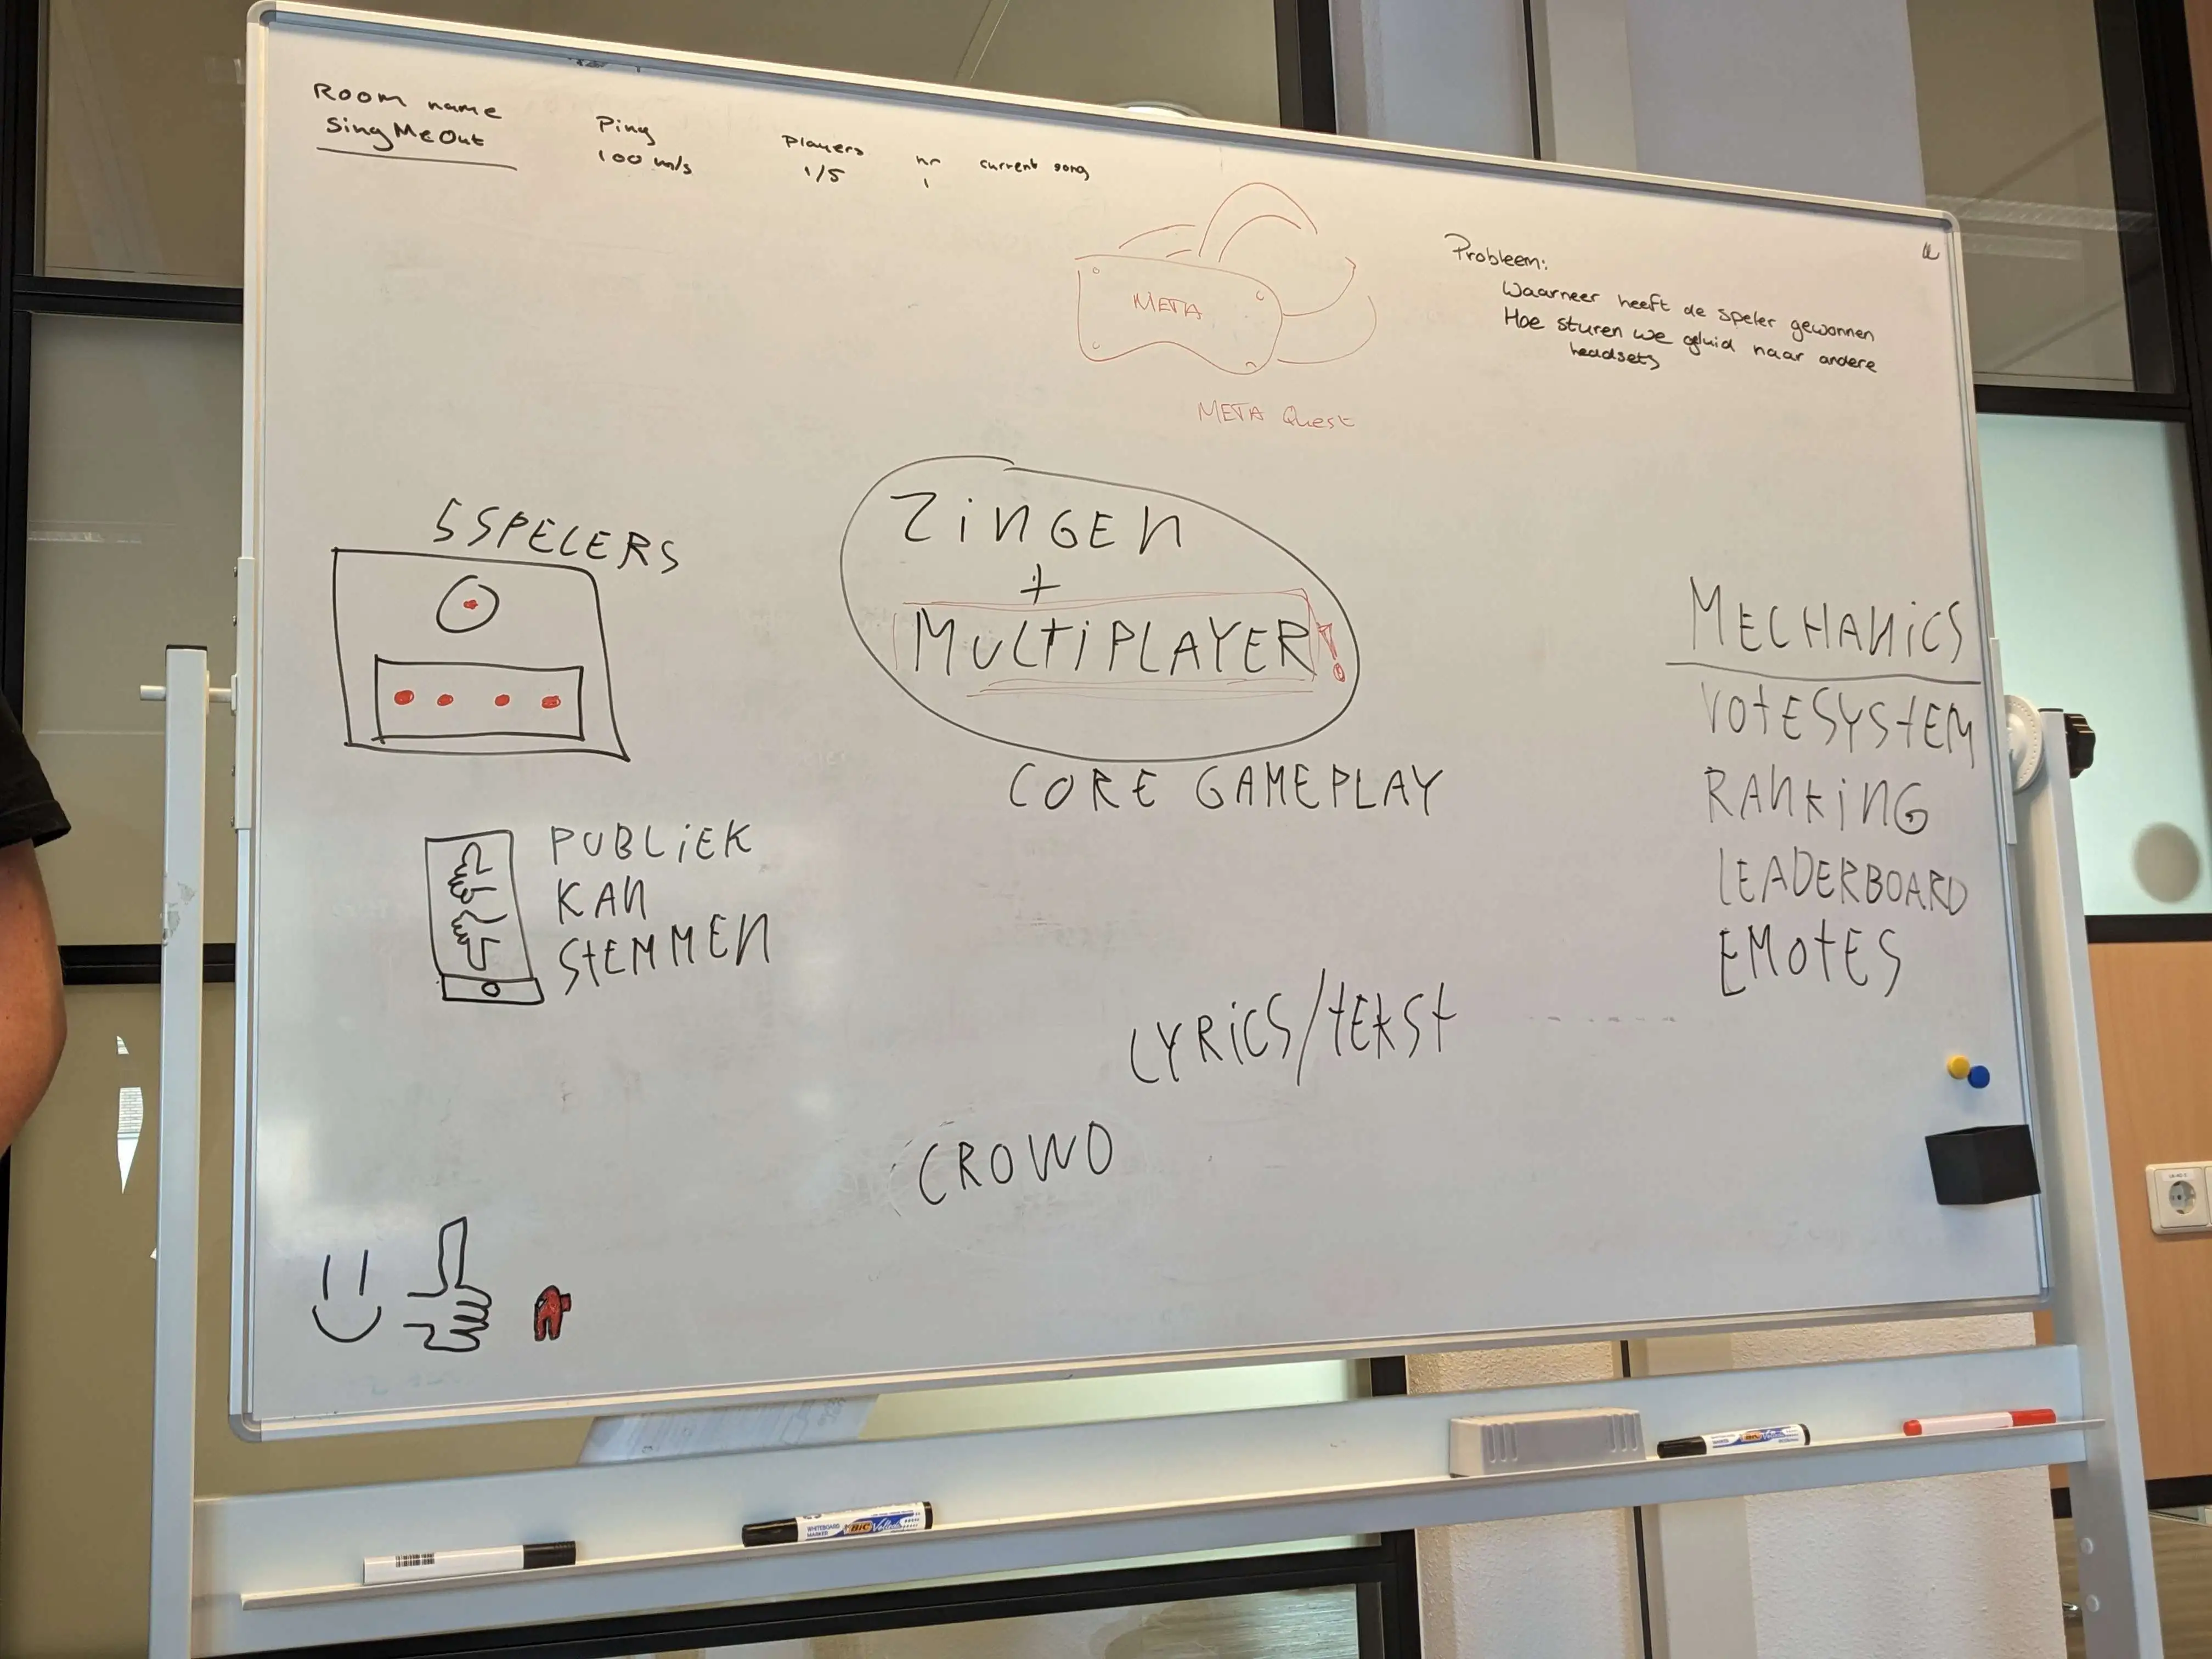 Room name
SingMeOut
Ping
100 m/s
Players
1/5
nr
1
current song
META
META Quest
Probleem:
Waarneer heeft de speler gewonnen
Hoe sturen we geluid naar andere
headsets
5 SPELERS
ZINGEN
+
MULTIPLAYER!
CORE GAMEPLAY
MECHANICS
VOTESYSTEM
RANKING
LEADERBOARD
EMOTES
PUBLIEK
KAN
STEMMEN
LYRICS/TEKST
CROWD
WHITEBOARD
MARKER
BIC Velleda
BIC Velleda